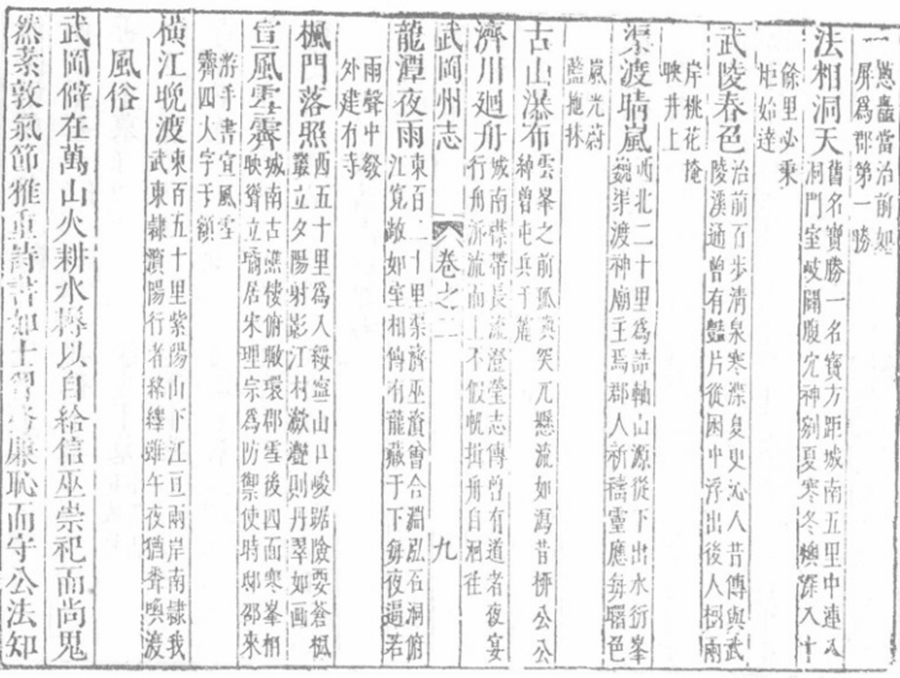 蔥矗當治前如
屏爲郡第一勝
法相洞天
舊名寶勝一名寶方距城南五里中連八
洞門室岐闢腹宂神剜夏寒冬燠深入十
餘里必秉
炬始達
武陵春色
治前百步清泉寒潔沁人昔傳與武
陵溪通曾有豔片從困中浮出後人樹兩
岸桃花掩
映井上
渠渡晴嵐
西北二十里爲誥軸山源從下出水衍峯
巍渠渡神廟王焉郡人祈禱靈應每曙色
嵐光蔚
藍拖抹
古山瀑布
雲峯之前孤突兀懸流如瀉昔恠公公
神曾屯兵于麓
濟川廻舟
城南襟帶長流澄瑩志傳曾有道者夜宴
行舟泝流而上不假帆揖舟自洄往
武岡州志 卷之二 九
龍潭夜雨
東百二十里渠濟巫濆會合淵泓石洞俯
江寬敞如室相傳有龍藏于下每夜逼若
雨聲中發
外建有寺
楓門落照
西五十里爲入綏寧山口峻踞險要蒼楓
叢立夕陽射影江村歛灎則丹翠如畫
宣風雪霽
城南古譙樓俯瞰環郡雪後四面寒峯相
映聳立瑜居宋理宗爲防禦使時邸邵來
游手書宣風雪
霽四大字于額
橫江晚渡
東百五十里紫陽山下江亘兩岸南隸我
武東隸濵陽行者絡繹雖午夜猶聲喚渡
風俗
武岡僻在萬山火耕水耨以自給信巫崇祀而尚鬼
然素敦氣節雅重詩書如士習務廉恥而守公法知